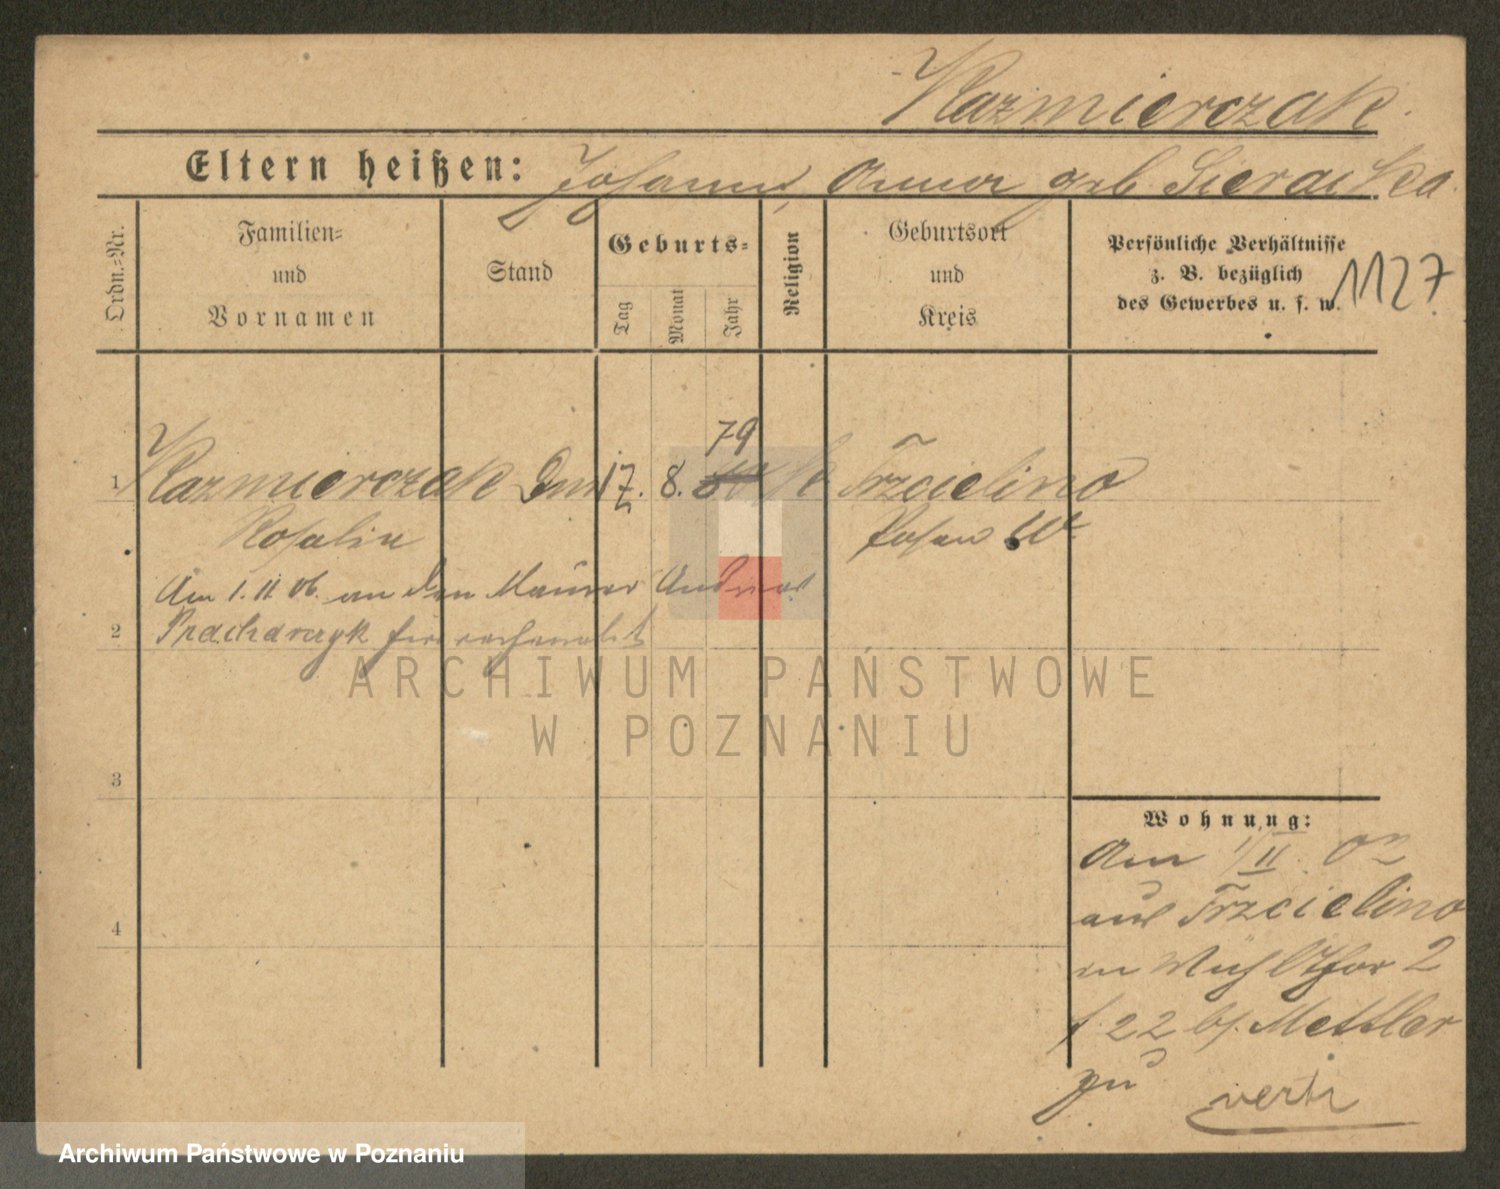 Kazmierczak
Eltern heißen: Johann, Anna geb. Sieracka
Ordn.=Nr.
Familien=
und
Vornamen
Stand
Geburts=
Tag
Monat
Jahr
Religion
Geburtsort
und
Kreis
Persönliche Verhältnisse
z. B. bezüglich
des Gewerbes u. s. w.
1127
79
1 Kazmierczak 17. 8. 80 k Trzcielino
Rosalie Posen W.
Am 1. II 06. an den Maurer Andreas
2 Pracharczyk
3
4
Wohnung:
Am 1/II 02
aus Trzcielino
in 2
22 b/. Mettler
zu
vertr
ARCHIWUM PAŃSTWOWE
W POZNANIU
Archiwum Państwowe w Poznaniu